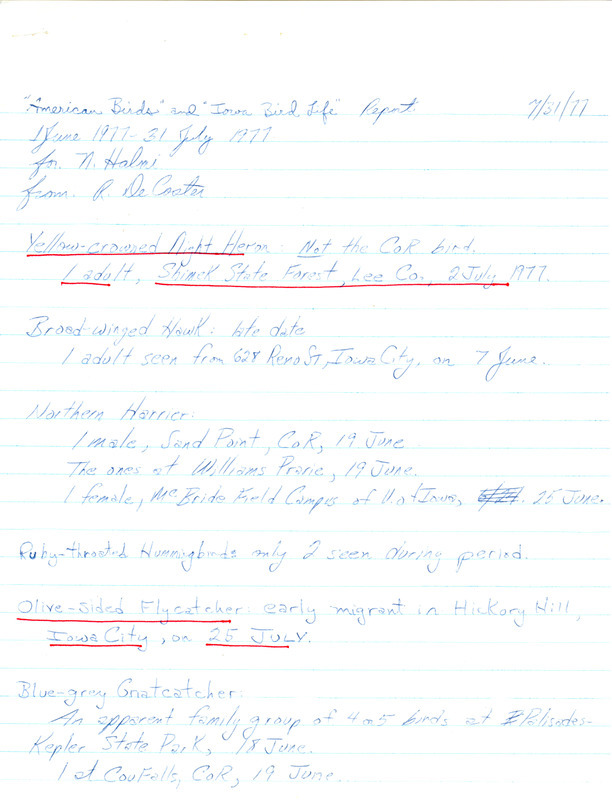 "American Birds" and "Iowa Bird Life" Report 7/31/77
1 June 1977-31 July 1977
for. N. Halmi
from. R. DeCoster
Yellow-crowned Night Heron: Not the CoR bird.
1 adult, Shimek State Forest, Lee Co., 2 July 1977.
Broad-winged Hawk: late date
1 adult seen from 628 Reno St, Iowa City, on 7 June.
Northern Harrier:
1 male, Sand Point, CoR, 19 June
The ones at Williams Prarie, 19 June.
1 female, McBride Field Campus of U of Iowa, 25 June.
Ruby-throated Hummingbirds only 2 seen during period.
Olive-sided Flycatcher: early migrant in Hickory Hill,
Iowa City, on 25 JULY.
Blue-gray Gnatcatcher:
An apparent family group of 4 or 5 birds at Palisades-
Kepler State Park, 18 June.
1 at Cou Falls, CoR, 19 June.